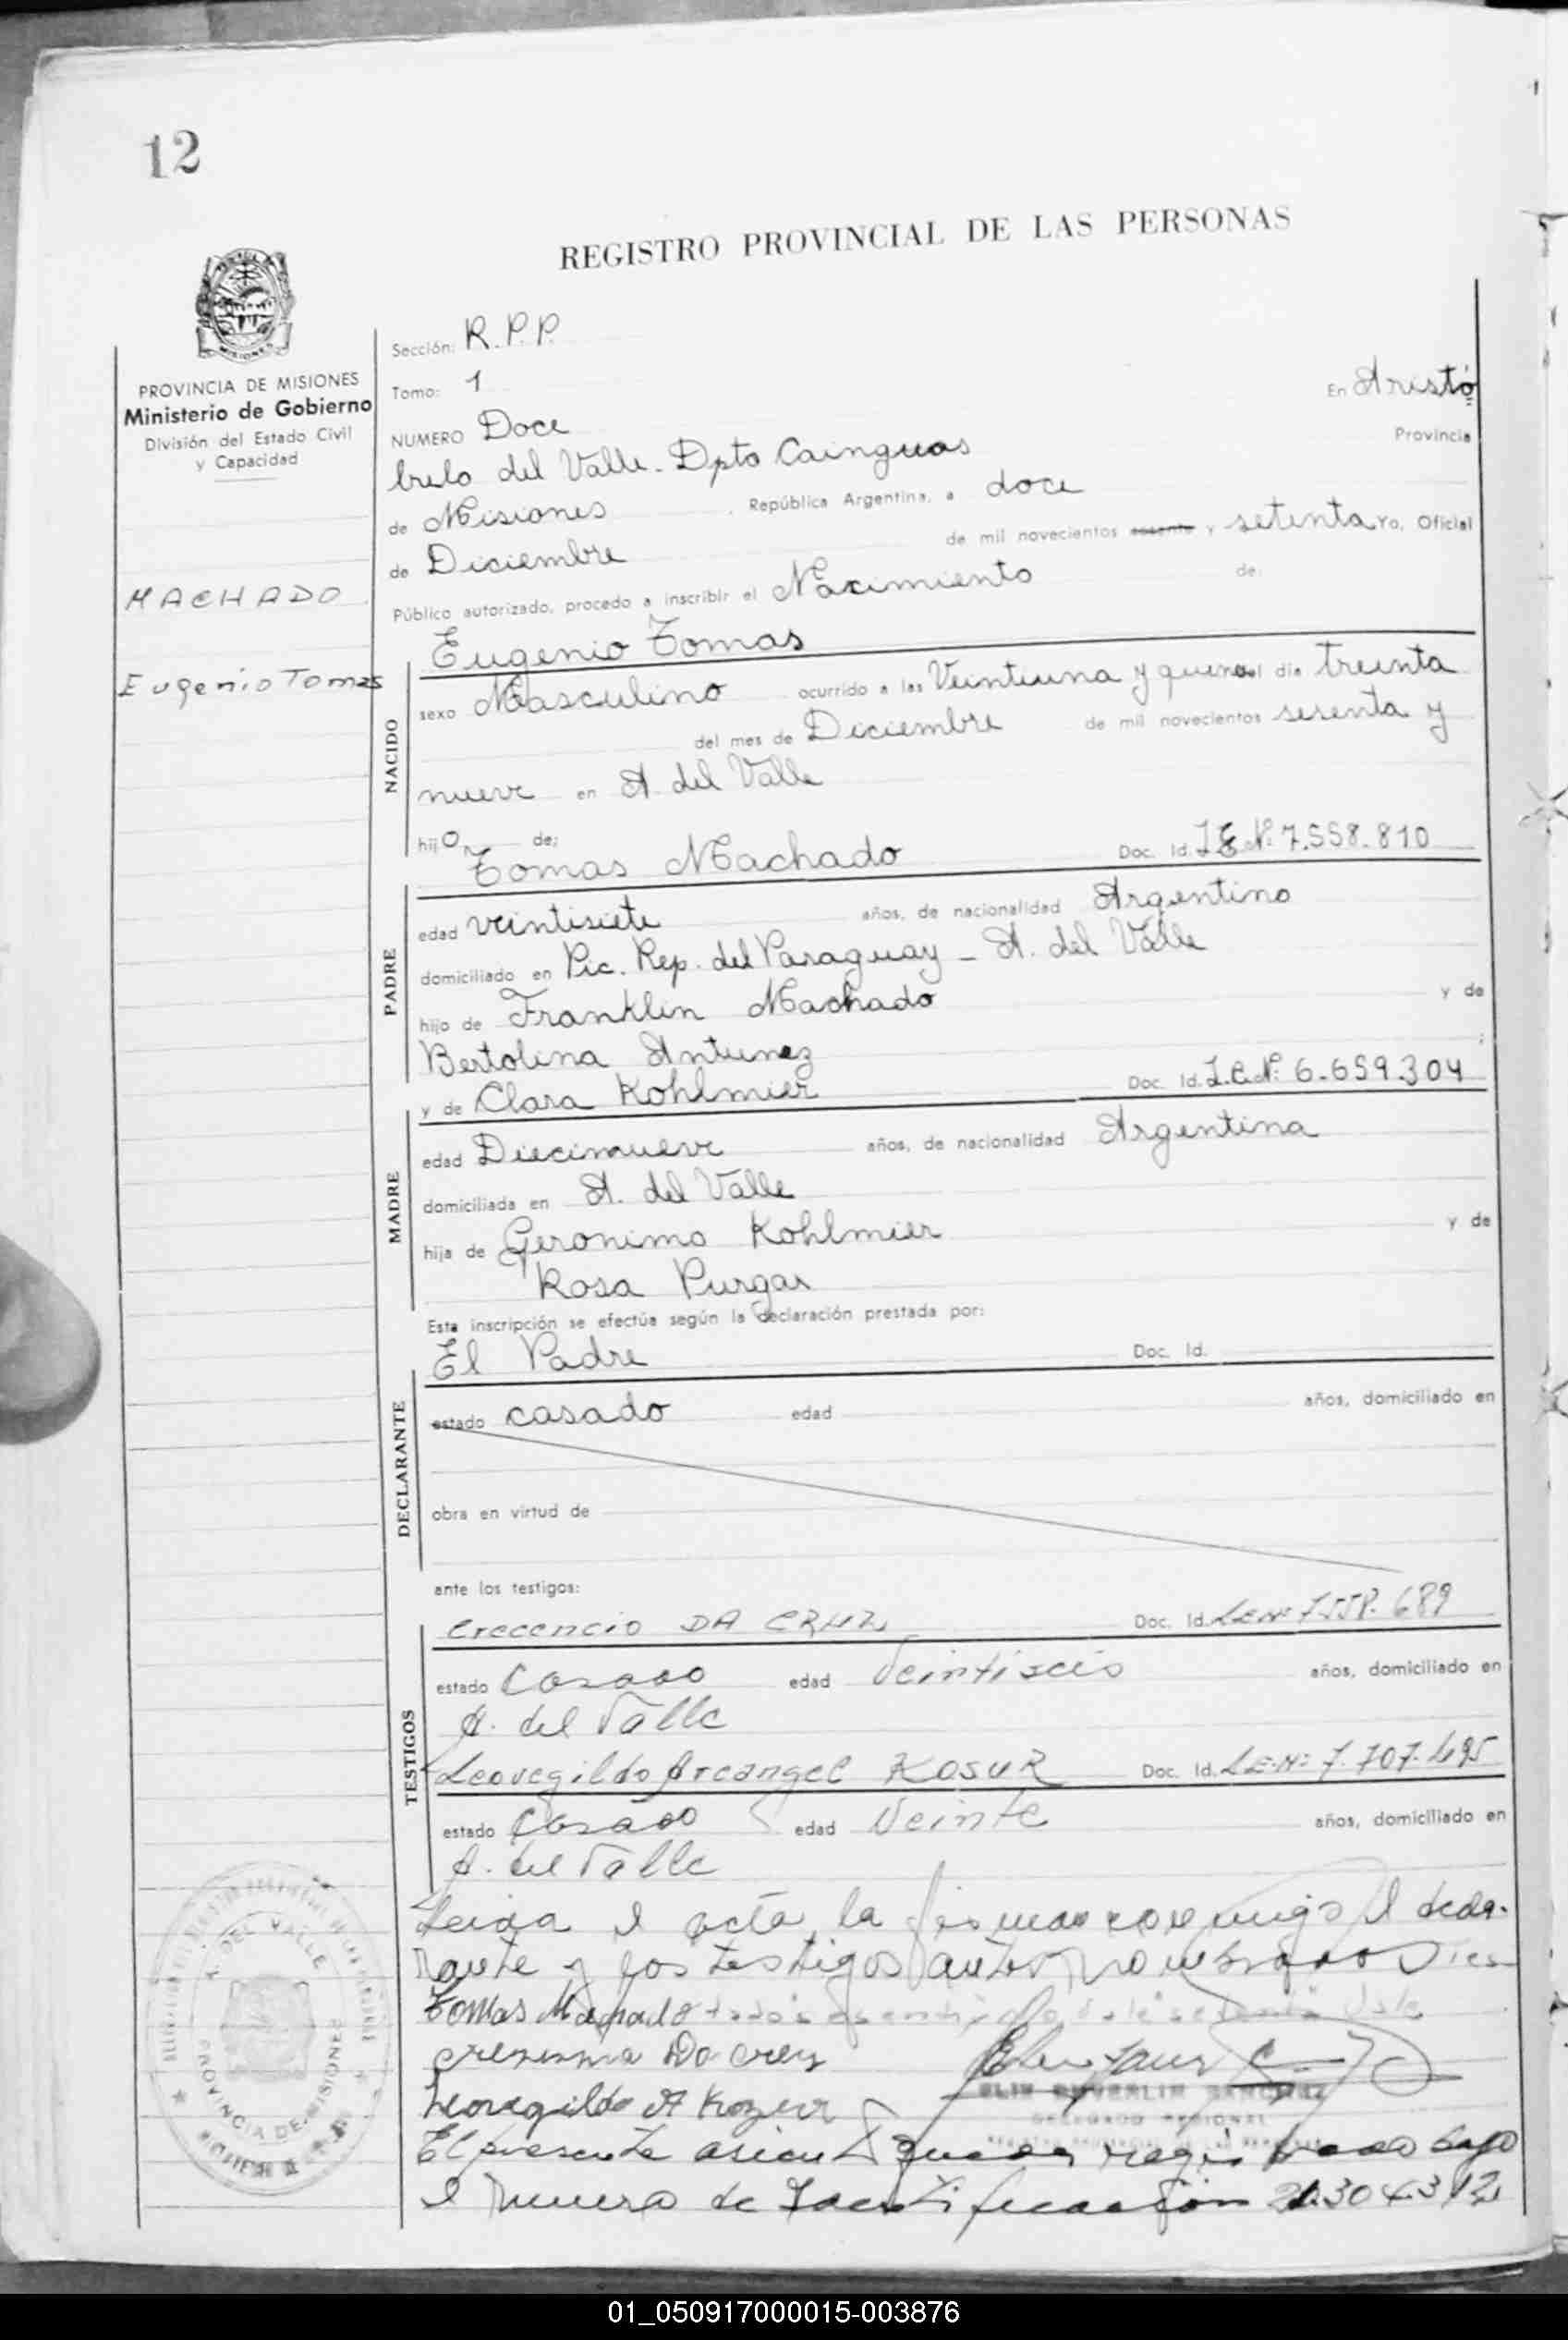 12
REGISTRO PROVINCIAL DE LAS PERSONAS
MISIONES
PROVINCIA DE MISIONES
Ministerio de Gobierno
División del Estado Civil
y Capacidad
MACHADO
Eugenio Tomas
Sección: R.P.P.
Tomo: 1
En Aristó
NUMERO Doce
Provincia
bulo del Valle - Dpto Cainguas
de Misiones, República Argentina, a doce
de Diciembre de mil novecientos sesenta y setenta Yo, Oficial
Público autorizado, procedo a inscribir el Nacimiento de:
Eugenio Tomas
NACIDO
sexo Masculino ocurrido a las Veintiuna y quince el día treinta
del mes de Diciembre de mil novecientos sesenta y
nueve en A. del Valle
hijo de:
Tomas Machado Doc. Id. L.E.Nº 7.558.810
PADRE
edad veintisiete años, de nacionalidad Argentino
domiciliado en Pic. Rep. del Paraguay - A. del Valle
hijo de Franklin Machado y de
Bertolina Antunez ;
y de Clara Kohlmier Doc. Id. L.C.Nº: 6.659.304
MADRE
edad Diecinueve años, de nacionalidad Argentina
domiciliada en A. del Valle
hija de Geronimo Kohlmier y de
Rosa Purgar
Esta inscripción se efectúa según la declaración prestada por:
El Padre Doc. Id.
DECLARANTE
estado casado edad años, domiciliado en
obra en virtud de
ante los testigos:
Crecencio DA CRUZ Doc. Id. L.E.Nº 7.558.689
TESTIGOS
estado Casado edad Veintiseis años, domiciliado en
A. del Valle
Leovegildo Arcangel KOSUR Doc. Id. L.E.Nº: 7.707.495
estado Casado edad Veinte años, domiciliado en
A. del Valle
Leida el acta, la firman conmigo el decla-
rante y los testigos antes nombrados
Tomas Machado
Da Cruz
Leovegildo A Kozur
DELEGADO REGIONAL
El presente asiento queda registrado bajo
el Numero de Identificación 21.304.312
A. DEL VALLE
PROVINCIA DE MISIONES
01_050917000015-003876